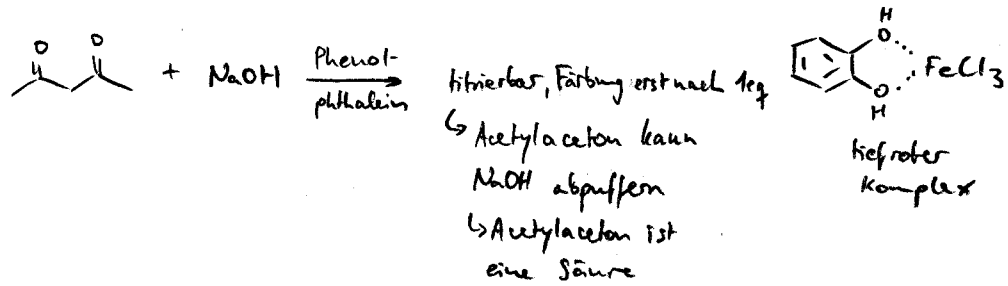 O O
+ NaOH
Phenol-
phthalein
titrierbar, Färbung erst nach 1eq
↳ Acetylaceton kann
NaOH abpuffern
↳ Acetylaceton ist
eine Säure
H
O
O
H
FeCl3
tiefroter
Komplex